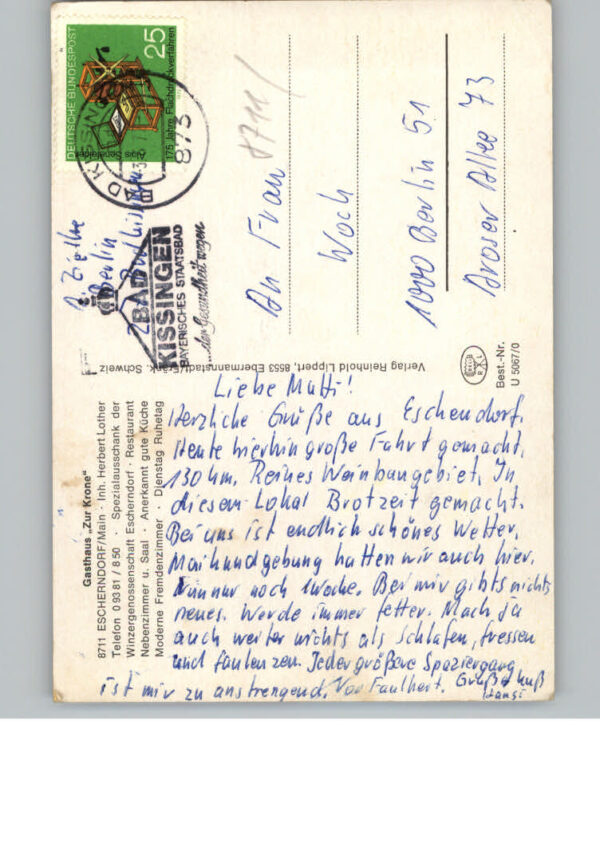 Gasthaus „Zur Krone"
8711 ESCHERNDORF/Main · Inh. Herbert Lother
Telefon 0 93 81 / 8 50 · Spezialausschank der
Winzergenossenschaft Escherndorf · Restaurant
Nebenzimmer u. Saal · Anerkannt gute Küche
Moderne Fremdenzimmer · Dienstag Ruhetag
Liebe Mutti!
Herzliche Grüße aus Eschendorf.
Heute hierhin große Fahrt gemacht.
130 km. Reines Weinbaugebiet. In
diesem Lokal Brotzeit gemacht.
Bei uns ist endlich schönes Wetter.
Maikundgebung hatten wir auch hier.
Nun nur noch 1 Woche. Bei mir gibts nichts
neues. Werde immer fetter. Mach ja
auch weiter nichts als schlafen, fressen
und faulenzen. Jeder größere Spaziergang
ist mir zu anstrengend. Vor Faulheit. Gruß + Kuß
Hansi
Verlag Reinhold Lippert, 8553 Ebermannstadt/Fränk. Schweiz
Zielke
Berlin
z. Zt. Bad Kissingen
DEUTSCHE BUNDESPOST
25
Alois Senefelder
175 Jahre Flachdruckverfahren
873 BAD KISSINGEN
BAD
KISSINGEN
BAYERISCHES STAATSBAD
...der Gesundheit wegen
8711
An Frau
Woch
1000 Berlin 51
Aroser Allee 73
Best.-Nr.
U 5067/0